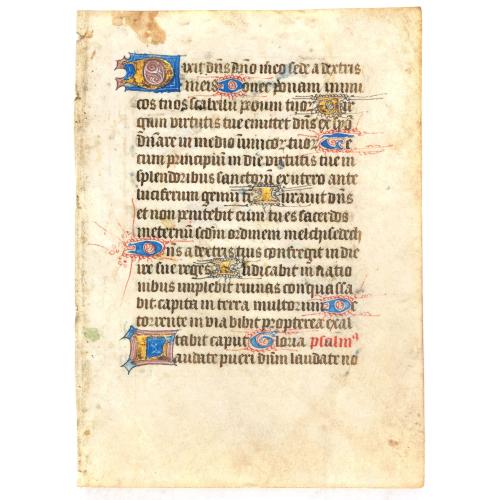 Dixit dñs dño meo sede a dextris
meis Donec ponam inimi
cos tuos scabellũ pedum tuoꝝ Vir
gam virtutis tue emittet dñs ex syõ
dñare in medio inimicoꝝ tuoꝝ Te
cum principiũ in die virtutis tue in
splendoribus sanctoꝝ ex utero ante
luciferum genui te Iuravit dñs
et non penitebit eum tu es sacerdos
in eternũ scdm ordinem melchisedech
Dñs a dextris tuis confregit in die
ire sue reges Iudicabit in natio
nibus implebit ruinas conquassa
bit capita in terra multorum De
torrente in via bibit propterea exal
tabit caput Gloria psalmꝰ
Laudate pueri dñm laudate no